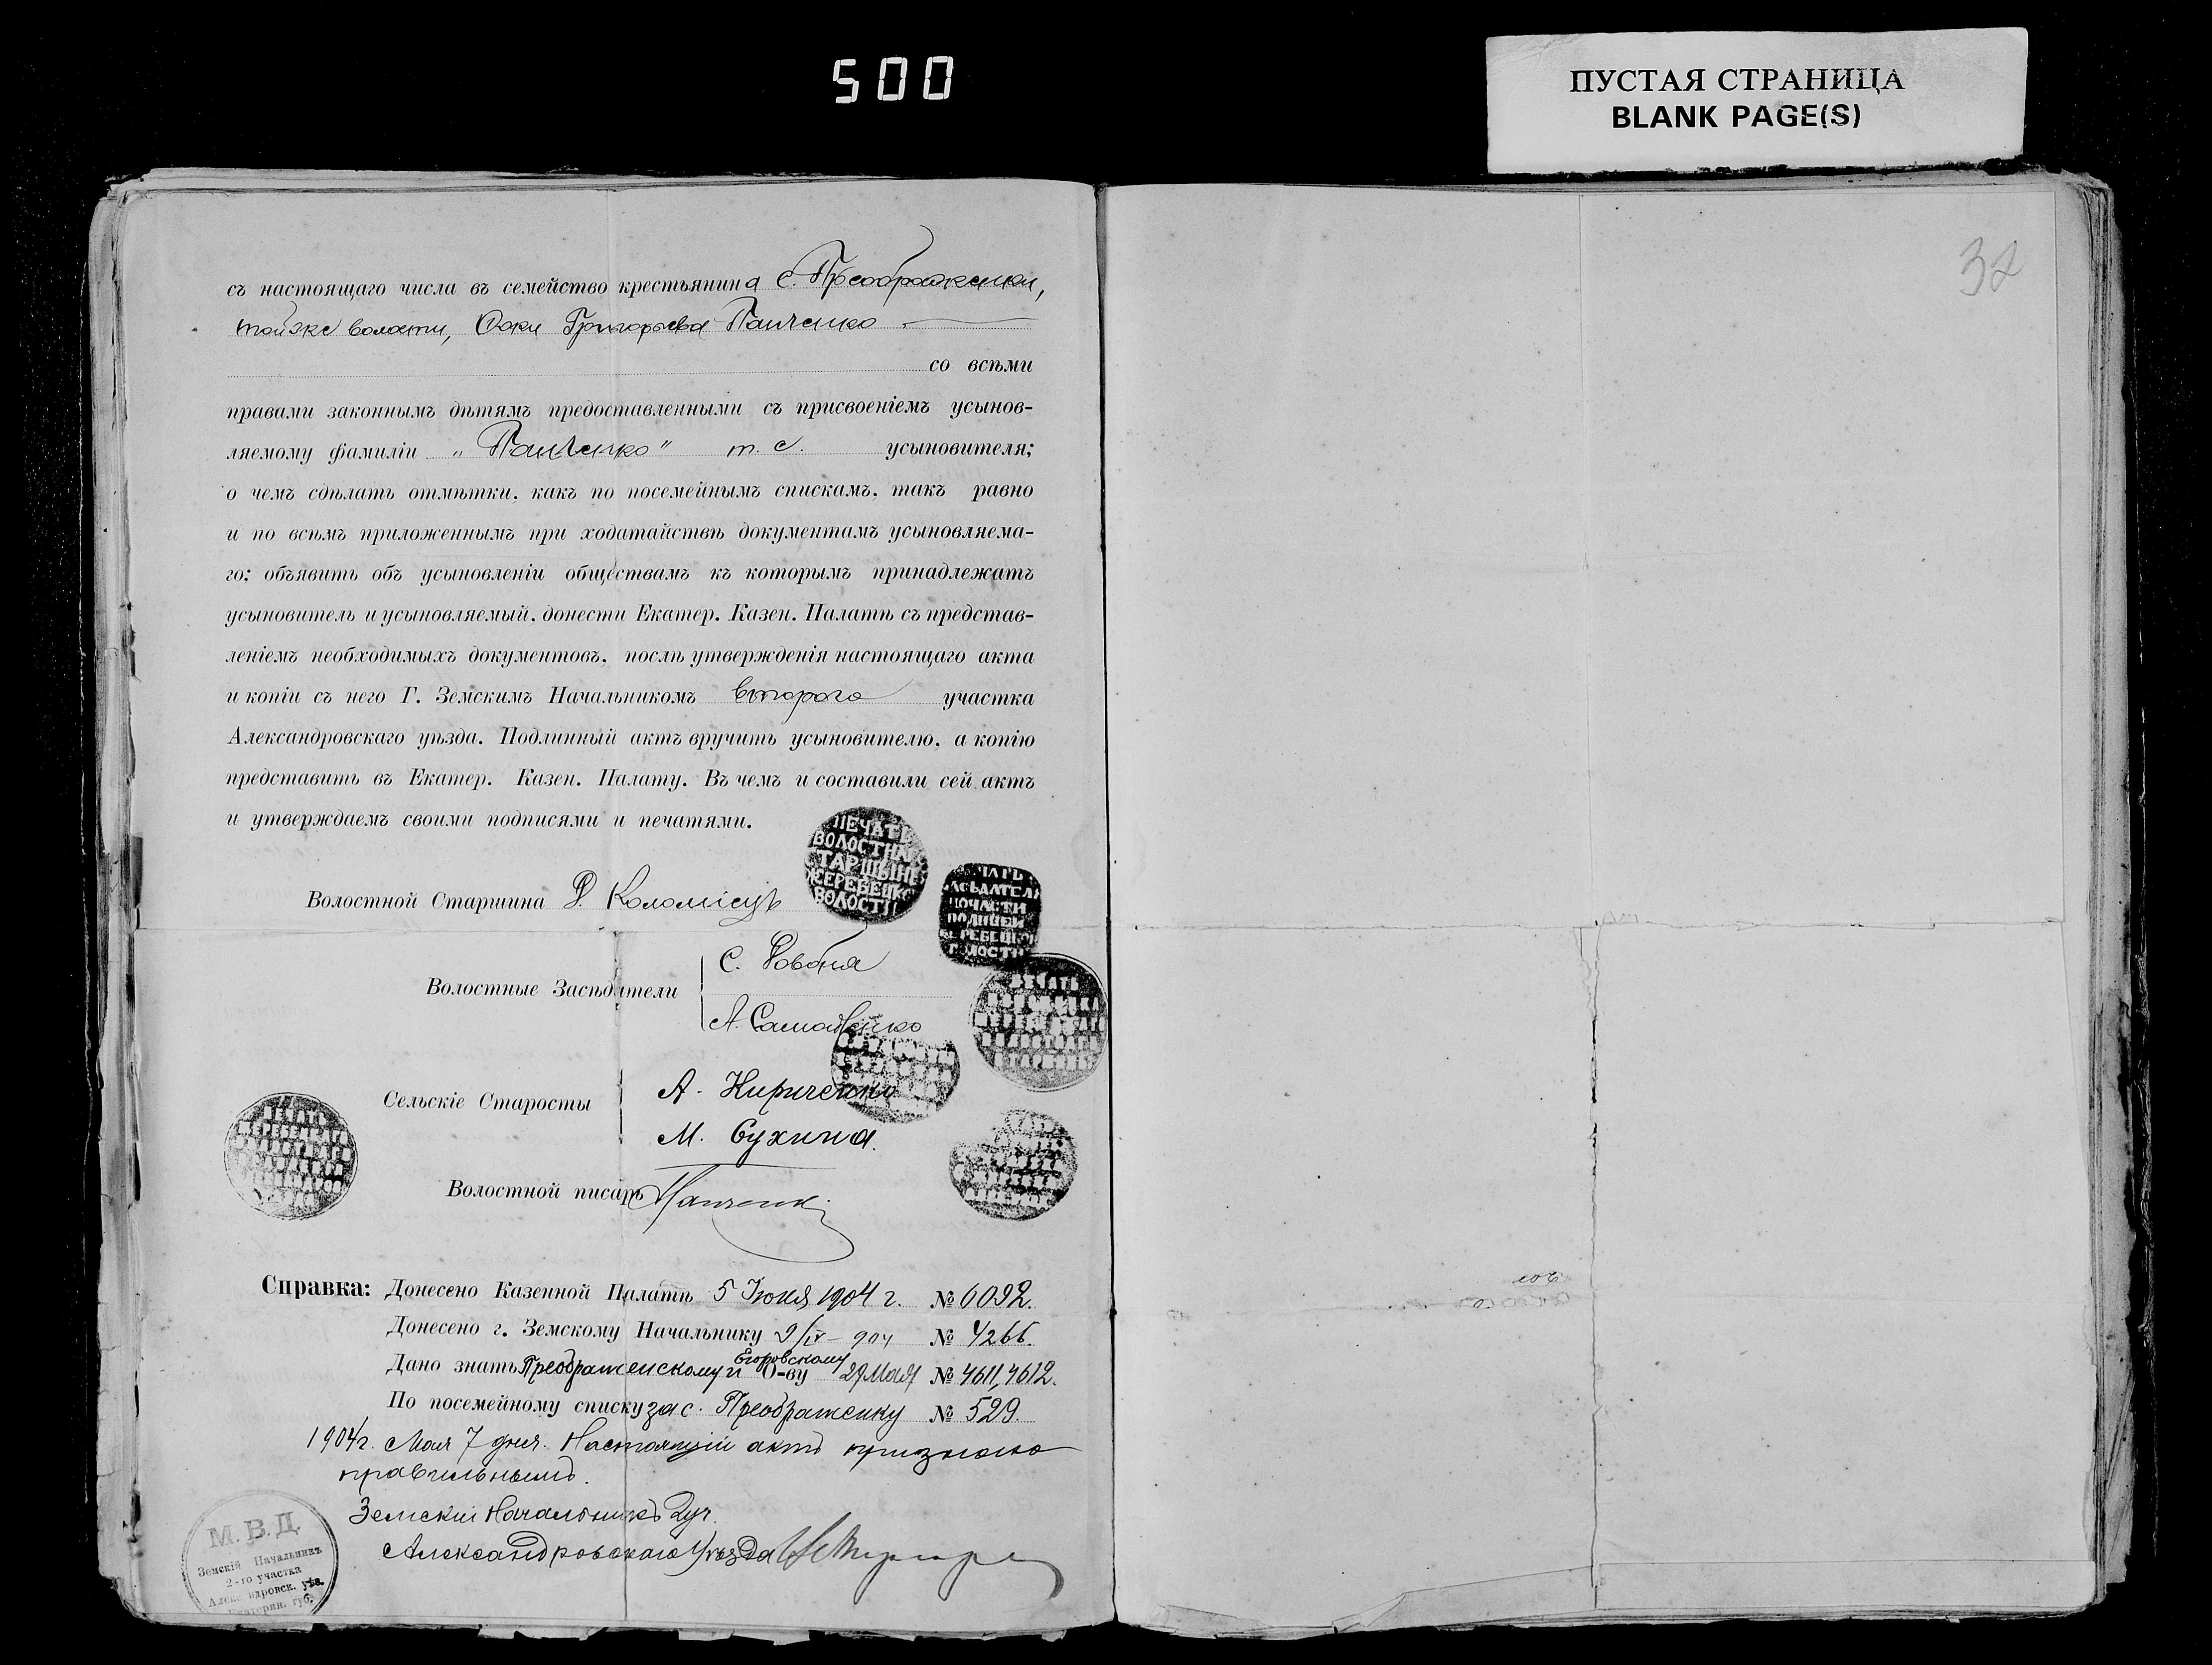 500
ПУСТАЯ СТРАНИЦА
BLANK PAGE(S)
32
съ настоящаго числа въ семейство крестьянина с. Преображенки,
тойже волости, Саки Григорьева Панченко
со всѣми
правами законнымъ дѣтямъ предоставленными съ присвоеніемъ усынов-
ляемому фамиліи „Панченко" т. е. усыновителя;
о чемъ сдѣлать отмѣтки, какъ по посемейнымъ спискамъ, такъ равно
и по всѣмъ приложеннымъ при ходатайствѣ документамъ усыновляема-
го; объявить объ усыновленіи обществамъ къ которымъ принадлежатъ
усыновитель и усыновляемый, донести Екатер. Казен. Палатѣ съ представ-
леніемъ необходимыхъ документовъ, послѣ утвержденія настоящаго акта
и копіи съ него Г. Земскимъ Начальникомъ второго участка
Александровскаго уѣзда. Подлинный актъ вручить усыновителю, а копію
представить въ Екатер. Казен. Палату. Въ чемъ и составили сей актъ
и утверждаемъ своими подписями и печатями.
ПЕЧАТЬ
ВОЛОСТНА
СТАРШЫНЫ
ЖЕРЕБЕЦК
ВОЛОСТИ
Волостной Старшина Р. Коломіецъ
Волостные Засѣдатели
С. Ровбня
А. Самойленко
Сельскіе Старосты
А. Кириченко
М. Сухина.
Волостной писарь Панченко
Справка: Донесено Казенной Палатѣ 5 Іюня 1904 г. № 6092.
Донесено г. Земскому Начальнику 9/IV – 904 № 4266.
Егоровскому
Дано знать Преображенскому и О-ву 29 Мая № 4611, 4612.
По посемейному списку за с. Преображенку № 529.
1904 г. Мая 7 дня. Настоящій актъ признанъ
правильнымъ.
Земскій Начальникъ 2 уч.
Александровскаго Уѣзда
М. В. Д.
Земскій Начальникъ
2-го участка
Александровск. уѣз.
Екатерин. губ.